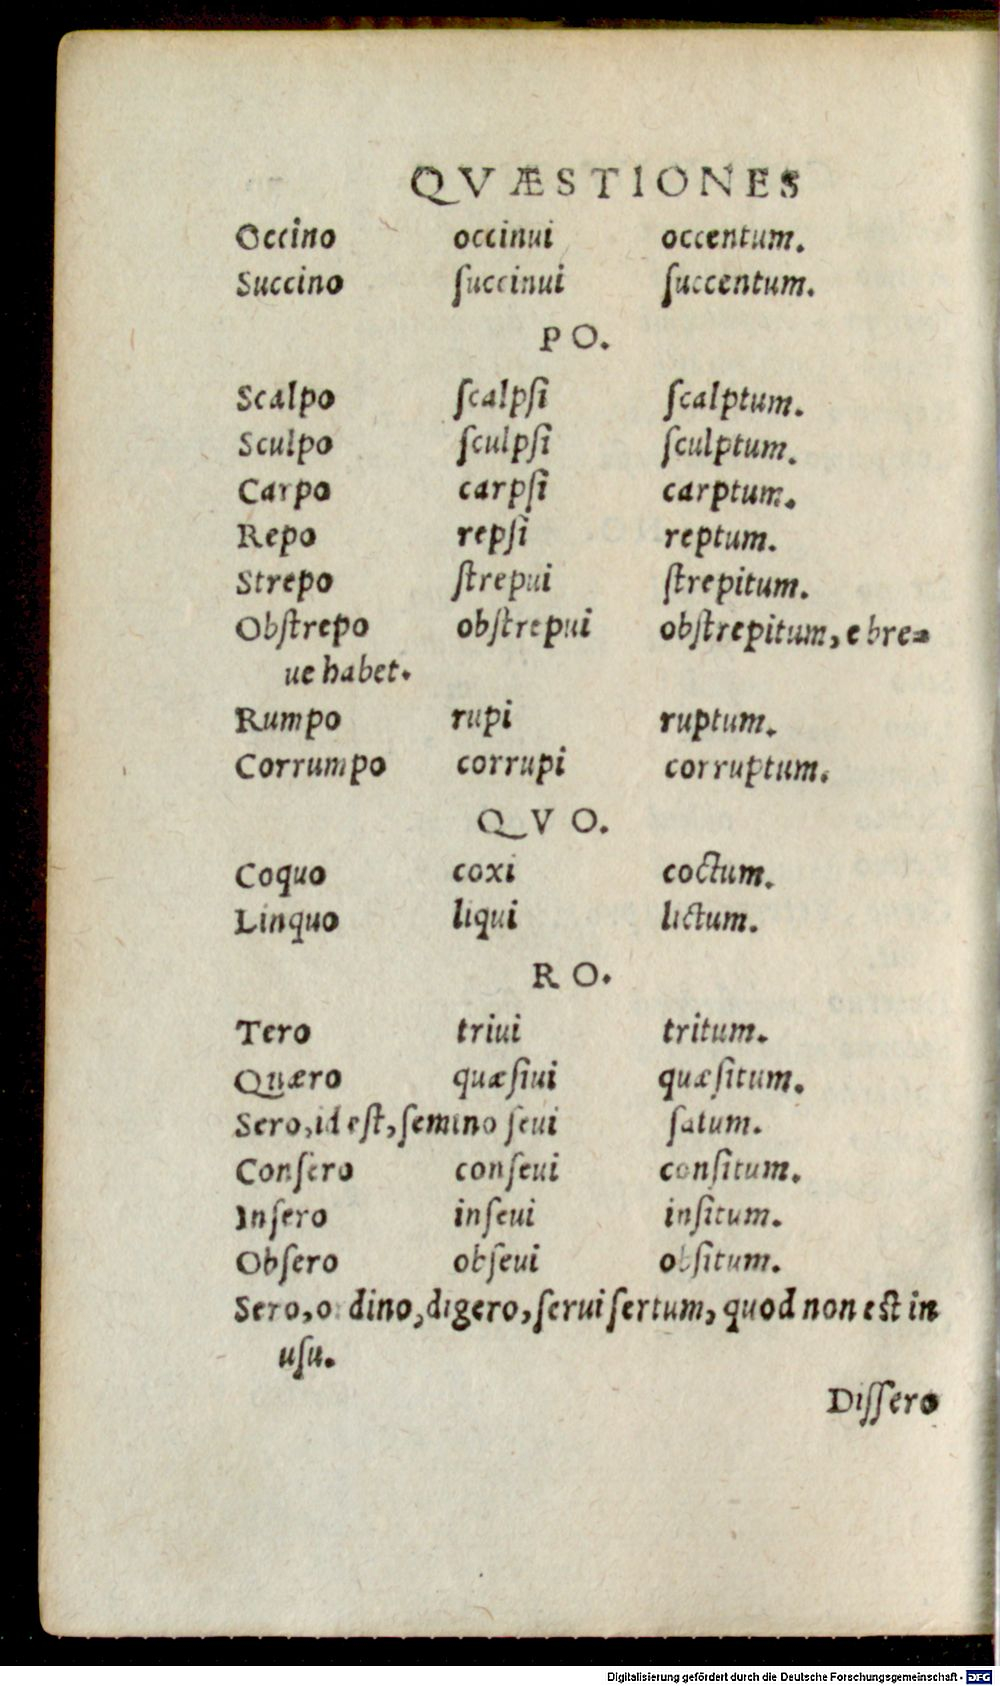 QVÆSTIONES
Occino occinui occentum.
Succino ſuccinui ſuccentum.
PO.
Scalpo ſcalpſi ſcalptum.
Sculpo ſculpſi ſculptum.
Carpo carpſi carptum.
Repo repſi reptum.
Strepo ſtrepui ſtrepitum.
Obſtrepo obſtrepui obſtrepitum, e bre=
ue habet.
Rumpo rupi ruptum.
Corrumpo corrupi corruptum.
QVO.
Coquo coxi coctum.
Linquo liqui lictum.
RO.
Tero triui tritum.
Quæro quæſiui quæſitum.
Sero, id eſt, ſemino ſeui ſatum.
Conſero conſeui conſitum.
Inſero inſeui inſitum.
Obſero obſeui obſitum.
Sero, ordino, digero, ſerui ſertum, quod non eſt in
uſu.
Diſſero
Digitalisierung gefördert durch die Deutsche Forschungsgemeinschaft - DFG